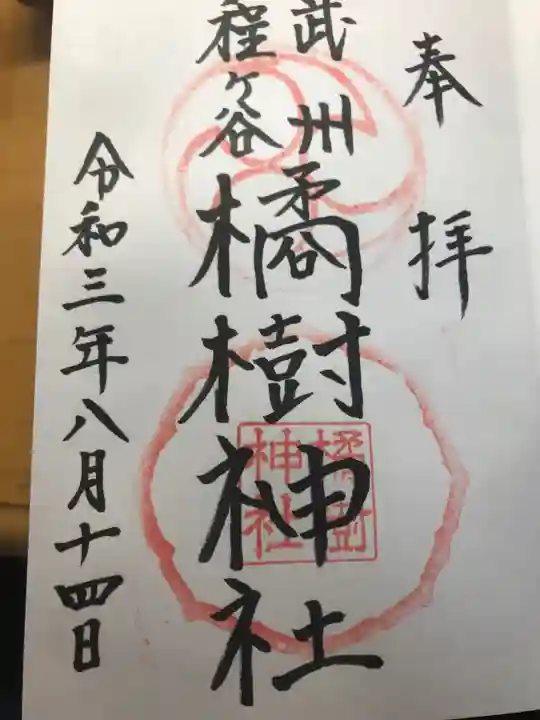 奉拝
武州
程ヶ谷
橘樹神社
橘樹
神社
令和三年八月十四日